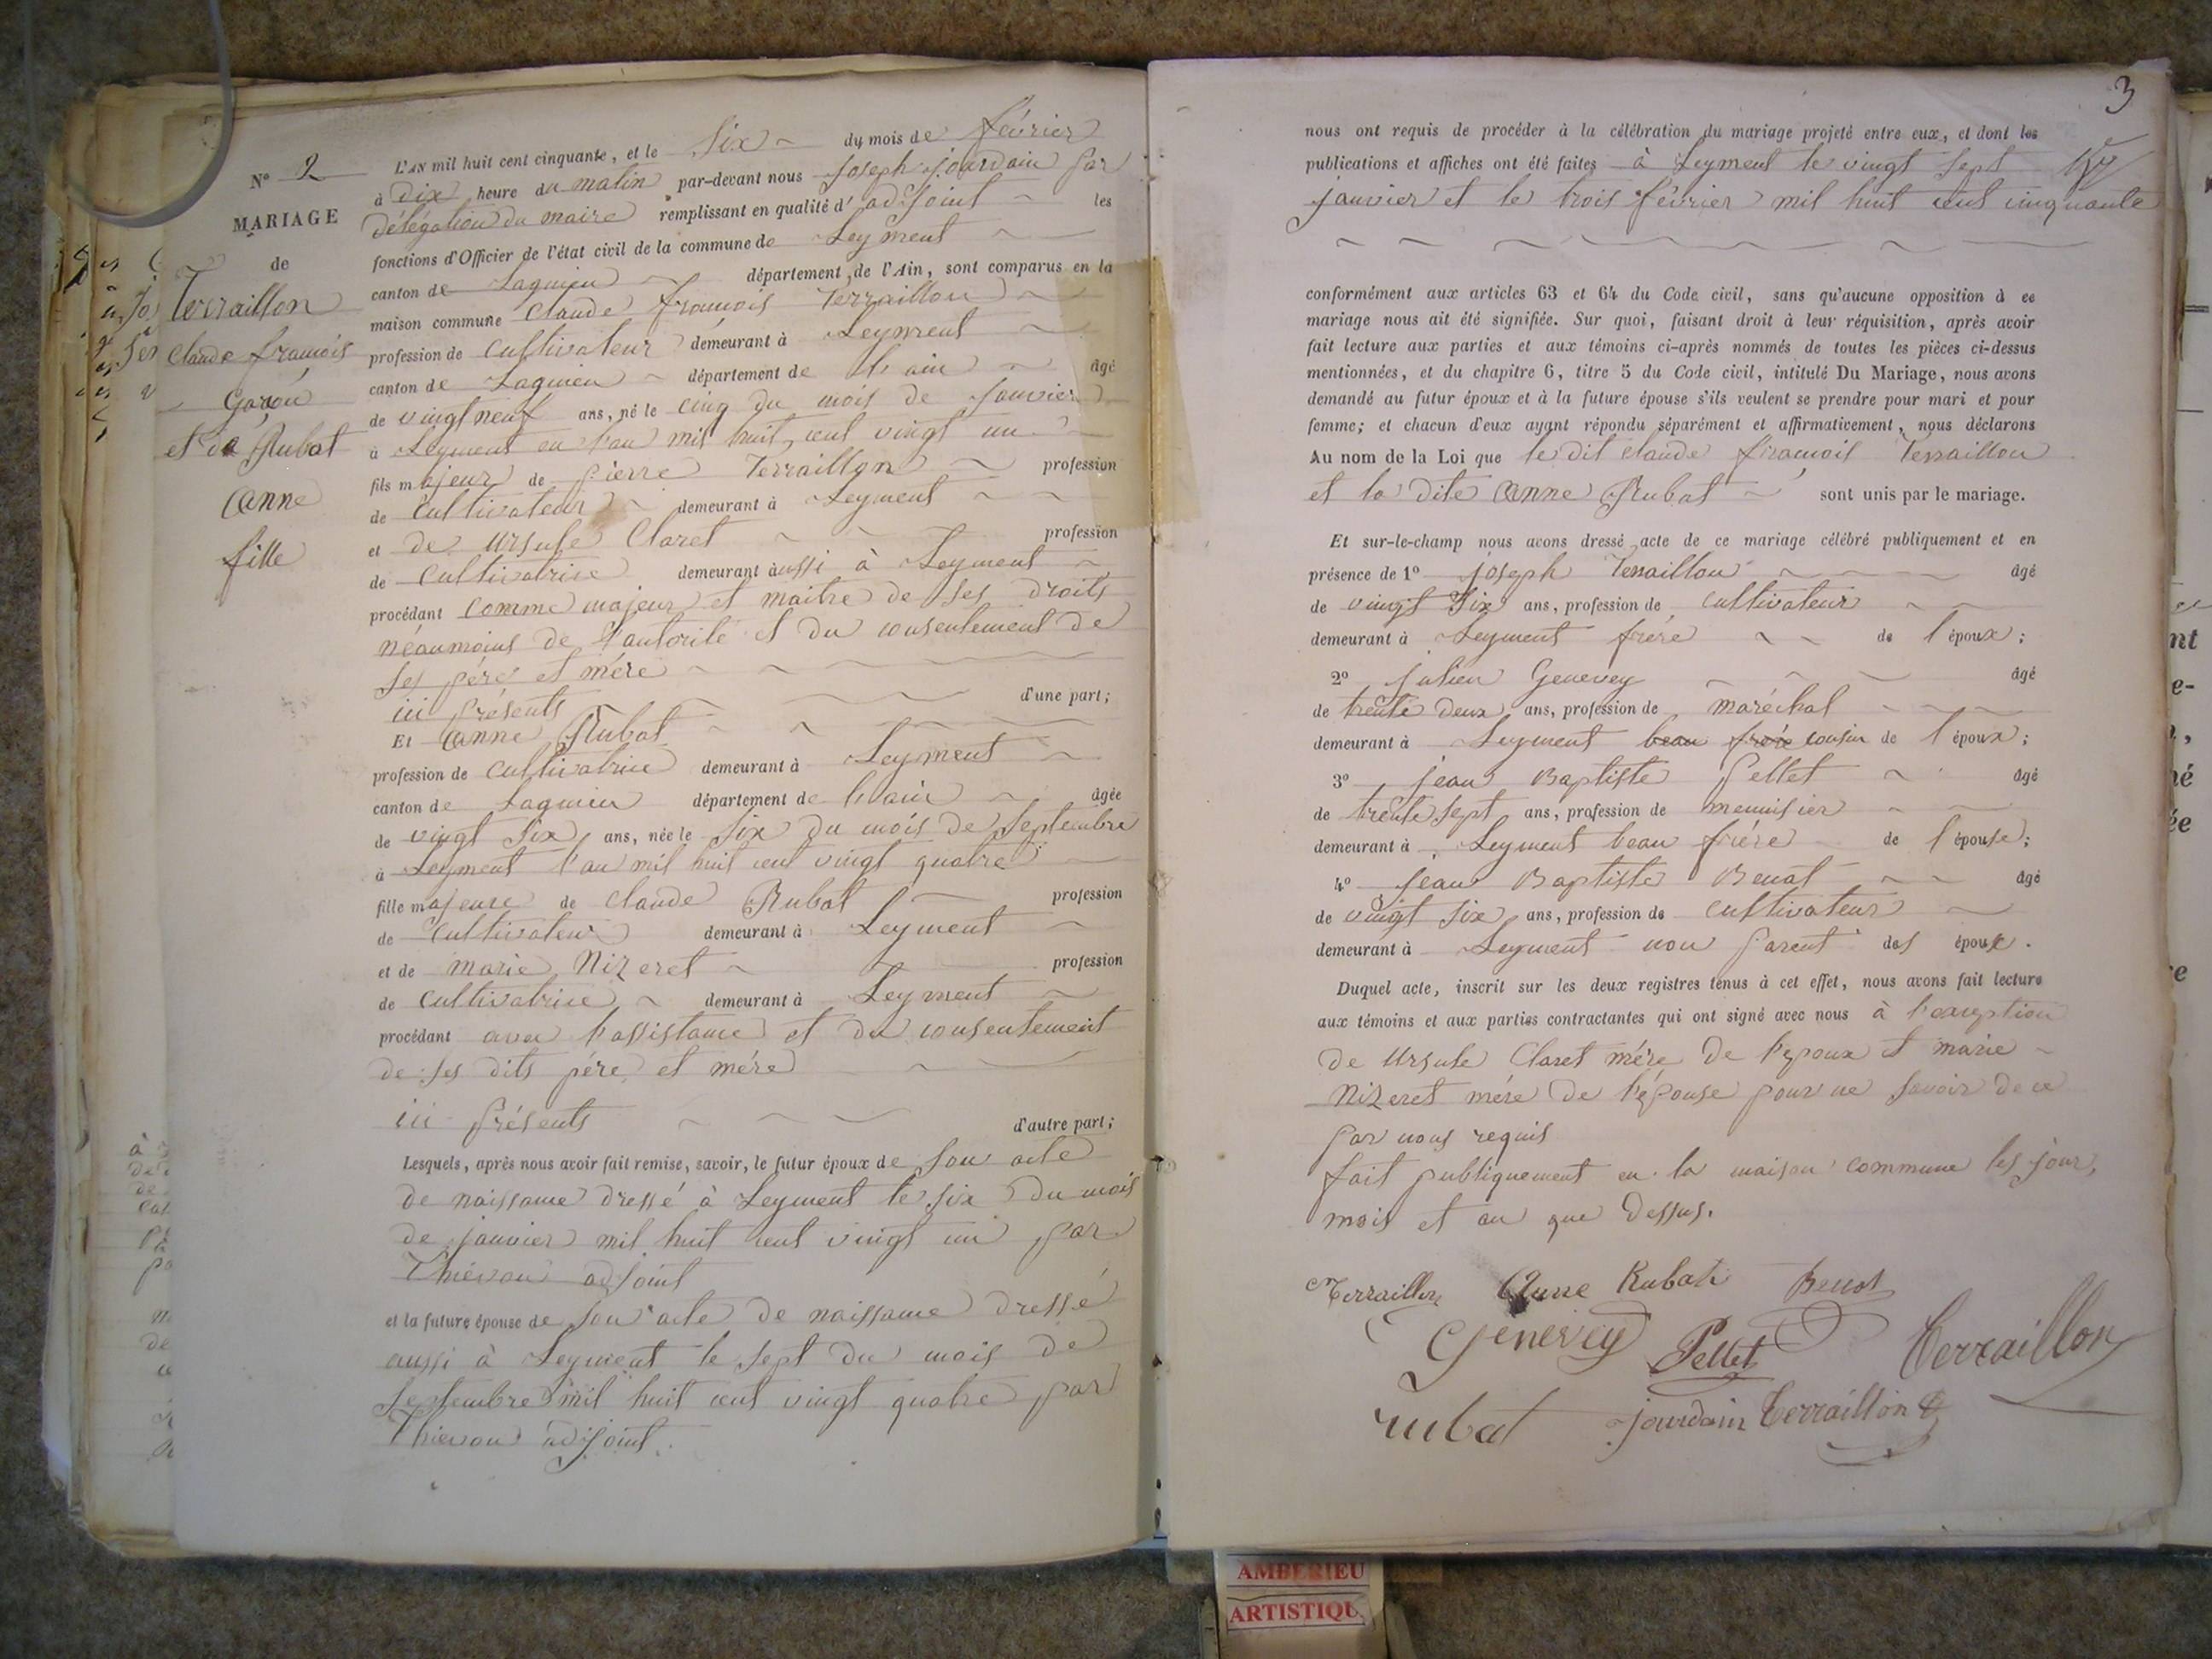 N° 2
MARIAGE
de
Terraillon
Claude françois
Garçon
et de Rubat
Anne
fille
L'AN mil huit cent cinquante, et le Six du mois de février
à dix heure du matin par-devant nous Joseph Jourdain par
délégation du maire remplissant en qualité d'adjoint les
fonctions d'Officier de l'état civil de la commune de Leyment
canton de Lagnieu département de l'Ain, sont comparus en la
maison commune Claude françois Terraillon
profession de Cultivateur demeurant à Leyment
canton de Lagnieu département de l'ain âgé
de vingt neuf ans, né le cinq du mois de Janvier
à Leyment en l'an mil huit cent vingt un
fils majeur de pierre Terraillon profession
de Cultivateur demeurant à Leyment
et de Ursule Claret profession
de Cultivatrice demeurant aussi à Leyment
procédant comme majeur et maitre de ses droits
néanmoins de l'autorité et du consentement de
ses père et mère
ici présents d'une part;
Et Anne Rubat
profession de Cultivatrice demeurant à Leyment
canton de Lagnieu département de l'ain âgée
de vingt six ans, née le Six du mois de Septembre
à Leyment l'an mil huit cent vingt quatre
fille majeure de Claude Rubat profession
de Cultivateur demeurant à Leyment
et de marie Nizeret profession
de Cultivatrice demeurant à Leyment
procédant avec l'assistance et du consentement
de ses dits père et mère
ici présents d'autre part;
Lesquels, après nous avoir fait remise, savoir, le futur époux de Son acte
de naissance dressé à Leyment le six du mois
de janvier mil huit cent vingt un par
adjoint
et la future épouse de Son acte de naissance dressé
aussi à Leyment le sept du mois de
Septembre mil huit cent vingt quatre par
adjoint.
3
nous ont requis de procéder à la célébration du mariage projeté entre eux, et dont les
publications et affiches ont été faites à Leyment le vingt sept
janvier et le trois février mil huit cent cinquante
conformément aux articles 63 et 64 du Code civil, sans qu'aucune opposition à ce
mariage nous ait été signifiée. Sur quoi, faisant droit à leur réquisition, après avoir
fait lecture aux parties et aux témoins ci-après nommés de toutes les pièces ci-dessus
mentionnées, et du chapitre 6, titre 5 du Code civil, intitulé Du Mariage, nous avons
demandé au futur époux et à la future épouse s'ils veulent se prendre pour mari et pour
femme; et chacun d'eux ayant répondu séparément et affirmativement, nous déclarons
Au nom de la Loi que le dit Claude françois Terraillon
et la dite Anne Rubat sont unis par le mariage.
Et sur-le-champ nous avons dressé acte de ce mariage célébré publiquement et en
présence de 1° Joseph Terraillon âgé
de vingt Six ans, profession de Cultivateur
demeurant à Leyment frère de l'époux;
2° Julien Genevey âgé
de trente deux ans, profession de maréchal
demeurant à Leyment beau frère cousin de l'époux;
3° Jean Baptiste Pellet âgé
de trente sept ans, profession de menuisier
demeurant à Leyment beau frère de l'épouse;
4° Jean Baptiste Benat âgé
de vingt six ans, profession de Cultivateur
demeurant à Leyment non parent des époux.
Duquel acte, inscrit sur les deux registres tenus à cet effet, nous avons fait lecture
aux témoins et aux parties contractantes qui ont signé avec nous à l'exception
de Ursule Claret mère de l'epoux et marie
Nizeret mère de l'épouse pour ne savoir de ce
par nous requis
fait publiquement en la maison commune les jour,
mois et an que dessus.
Terraillon Anne Rubat Benat
Genevey Pellet Terraillon
rubat jourdain Terraillon
AMBERIEU
ARTISTIQU